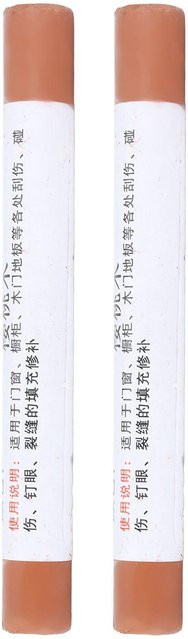 樱桃木
使用说明：适用于门窗、橱柜、木门地板等各处刮伤、碰
伤、钉眼、裂缝的填充修补
樱桃木
使用说明：适用于门窗、橱柜、木门地板等各处刮伤、碰
伤、钉眼、裂缝的填充修补